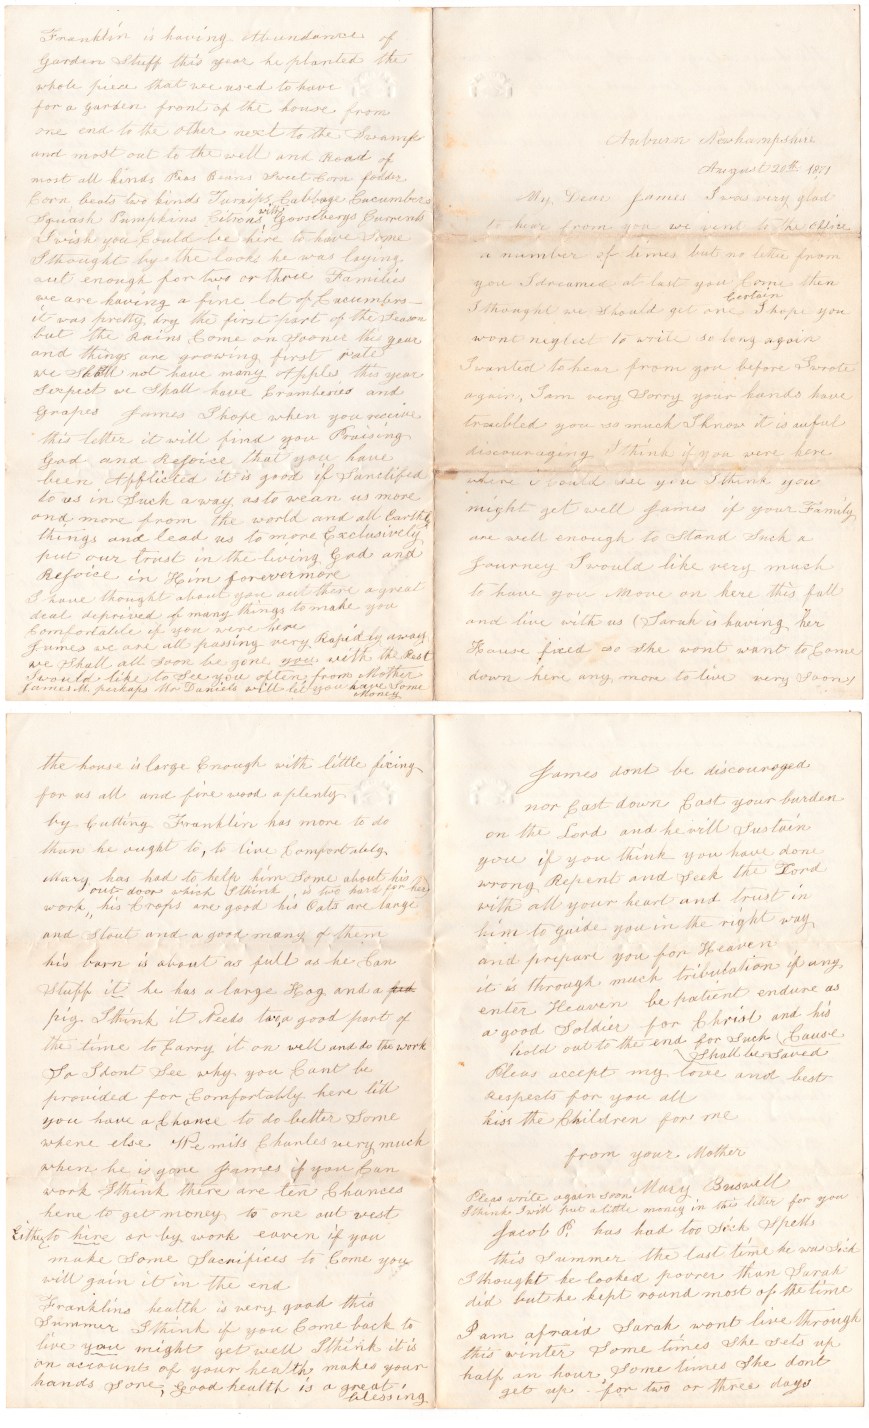 Auburn Newhampshire
August 20th 1871
My Dear James I was very glad
to hear from you we went to the office
a number of times but no letter from
you I dreamed at last you Come then
I thought we should get one Certain I hope you
wont neglect to write so long again
I wanted to hear from you before I wrote
again, I am very Sorry your hands have
troubled you so much I know it is awful
discouraging I think if you were here
where i could see you I think you
might get well James if your Family
are well enough to Stand Such a
Journey I would like very much
to have you Move on here this fall
and live with us (Sarah is having her
House fixed so She wont want to Come
down here any more to live very Soon)
the house is large Enough with little fixing
for us all and fire wood a plenty
by Cutting Franklin has more to do
than he ought to, to live Comfortably
Mary has had to help him Some about his
out door which I think is two hard for her
work, his Crops are good his Oats are large
and Stout and a good many of them
his barn is about as full as he Can
Stuff it he has a large Hog and a
pig I think it Needs two a good part of
the time to Carry it on well and do the work
So I dont See why you Cant be
provided for Comfortably here till
you have a Chance to do better Some
where else We miss Charles very much
when he is gone James if you Can
work I think there are ten Chances
here to get money to one out west
Either to hire or by work eaven if you
make Some Sacrifices to Come you
will gain it in the end
Franklins health is very good this
Summer I think if you Come back to
live you might get well I think it is
on account of your health makes your
hands Sore, Good health is a great
blessing
James dont be discouraged
nor Cast down Cast your burden
on the Lord and he will Sustain
you if you think you have done
wrong Repent and Seek the Lord
with all your heart and trust in
him to guide you in the right way
and prepare you for Heaven
it is through much tribulation if any
enter Heaven be patient endure as
a good Soldier for Christ and his
Cause
hold out to the end for Such
Shall be Saved
Pleas accept my love and best
respects for you all
kiss the Children for me
from your Mother
Mary Buswell
Pleas write again soon
I think I will put a little money in this letter for you
Jacob P. has had too Sick Spells
this Summer the last time he was Sick
I thought he looked poorer than Sarah
did but he kept round most of the time
I am afraid Sarah wont live through
this winter Some times She Sets up
half an hour, Some times She dont
get up for two or three days
Franklin is having Abundance of
Garden Stuff this year he planted the
whole piece that we used to have
for a garden front of the house from
one end to the other next to the Swamp
and most out to the well and Road of
most all kinds Peas Beans Sweet Corn fodder
Corn beats two kinds Turnips, Cabbage Cucumbers
Squash Pumpkins Citrons with Gooseberys Currents
I wish you Could be hire to have Some
I thought by the looks he was laying
out enough for two or three Familie
we are having a fine lot of Cucumbers—
it was pretty dry the first part of the Season
but the Rains Come on Sooner this year
and things are growing first rate
we Shall not have many Apples this year
I expect we Shall have Cramberies and
Grapes James I hope when you receive
this letter it will find you Praising
God and Rejoice that you have
been Afflicted it is good if Sanctifed
to us in Such away, as to wean us more
and more from the world and all Earthly
things and lead us to more Exclusively
put our trust in the living God and
Rejoice in Him forevermore
I have thought about you out there a great
deal deprived of many things to make you
Comfortable if you were here
James we are all passing very Rapidly away
we Shall all Soon be gone you with the Rest
I would like to See you often from Mother
James M. perhaps Mr Daniels will let you have Some
Money